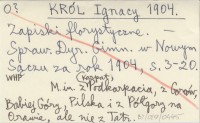 O? KRÓL Ignacy 1904.
Zapiski florystyczne.
Spraw. Dyr. Gimn. w Nowym
Sączu za rok 1904, s. 3-20.
WHP (Kazimt)
M. in z Podkarpacia, z Gorców,
Babiej Góry, Pilska i z Półgóry na
Orawie, ale nie z Tatr.